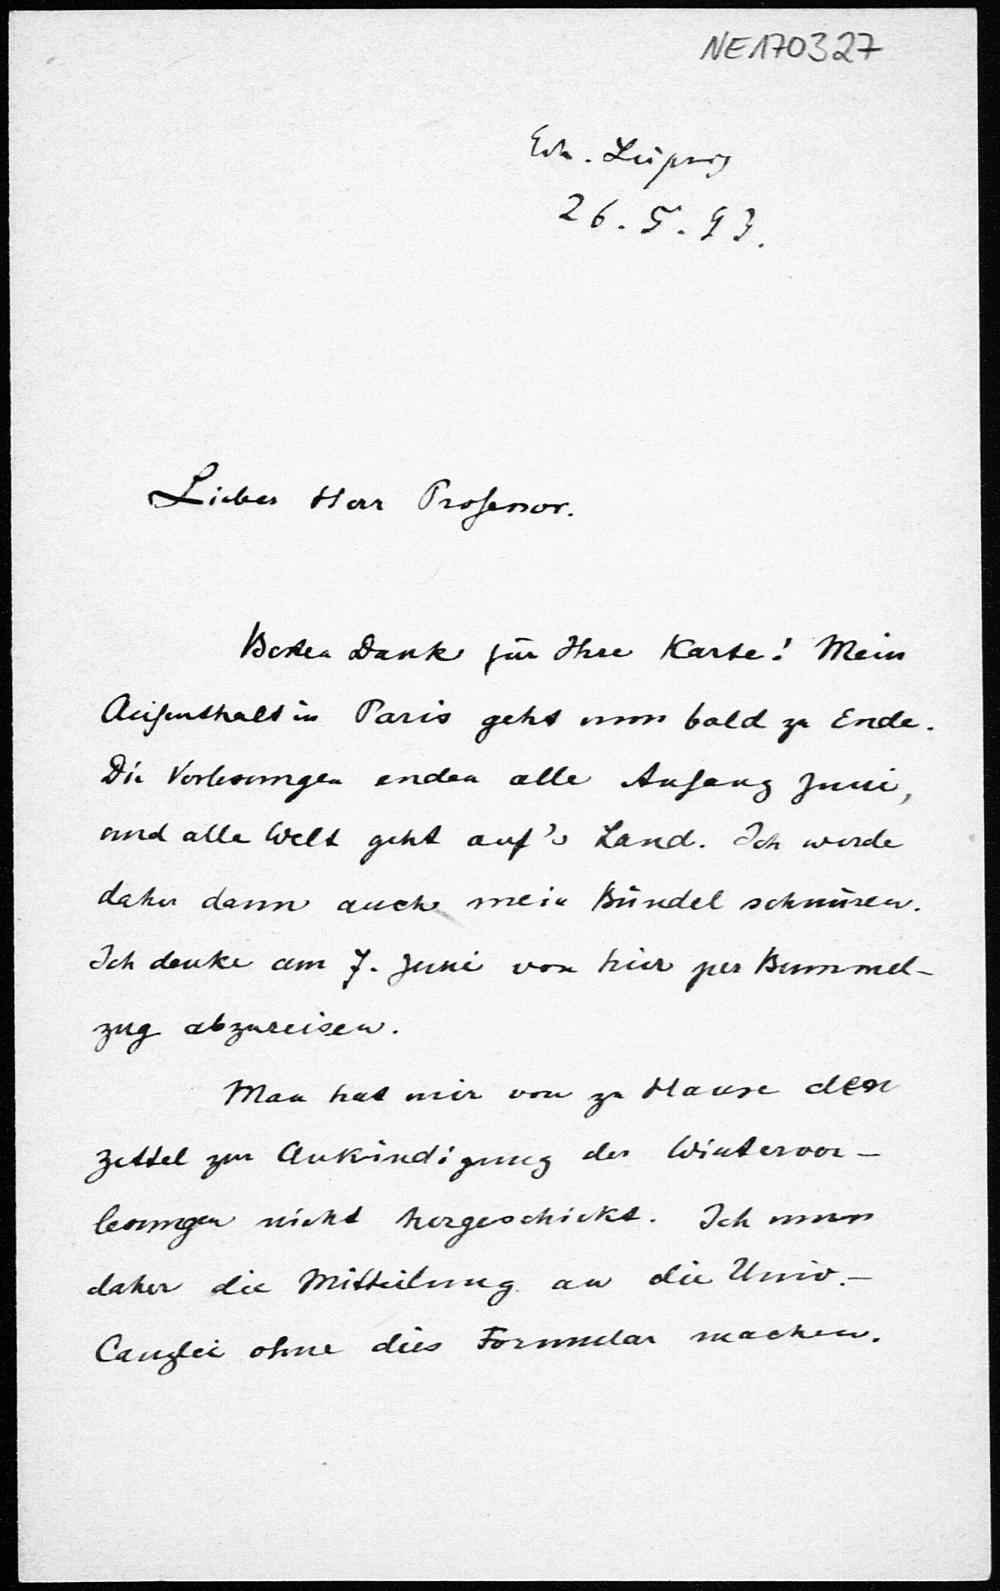 NE170327
Leipzig
26.5.93.
Lieber Herr Professor.
Besten Dank für Ihre Karte! Mein
Aufenthalt in Paris geht nun bald zu Ende.
Die Vorlesungen enden alle Anfang Juni,
und alle Welt geht auf's Land. Ich werde
daher dann auch mein Bündel schnüren.
Ich denke am 7. Juni von hier per Bummel-
zug abzureisen.
Man hat mir von zu Hause den
Zettel zur Ankündigung der Wintervor-
lesungen nicht hergeschickt. Ich muss
daher die Mitteilung an die Univ.-
Canzlei ohne dies Formular machen.